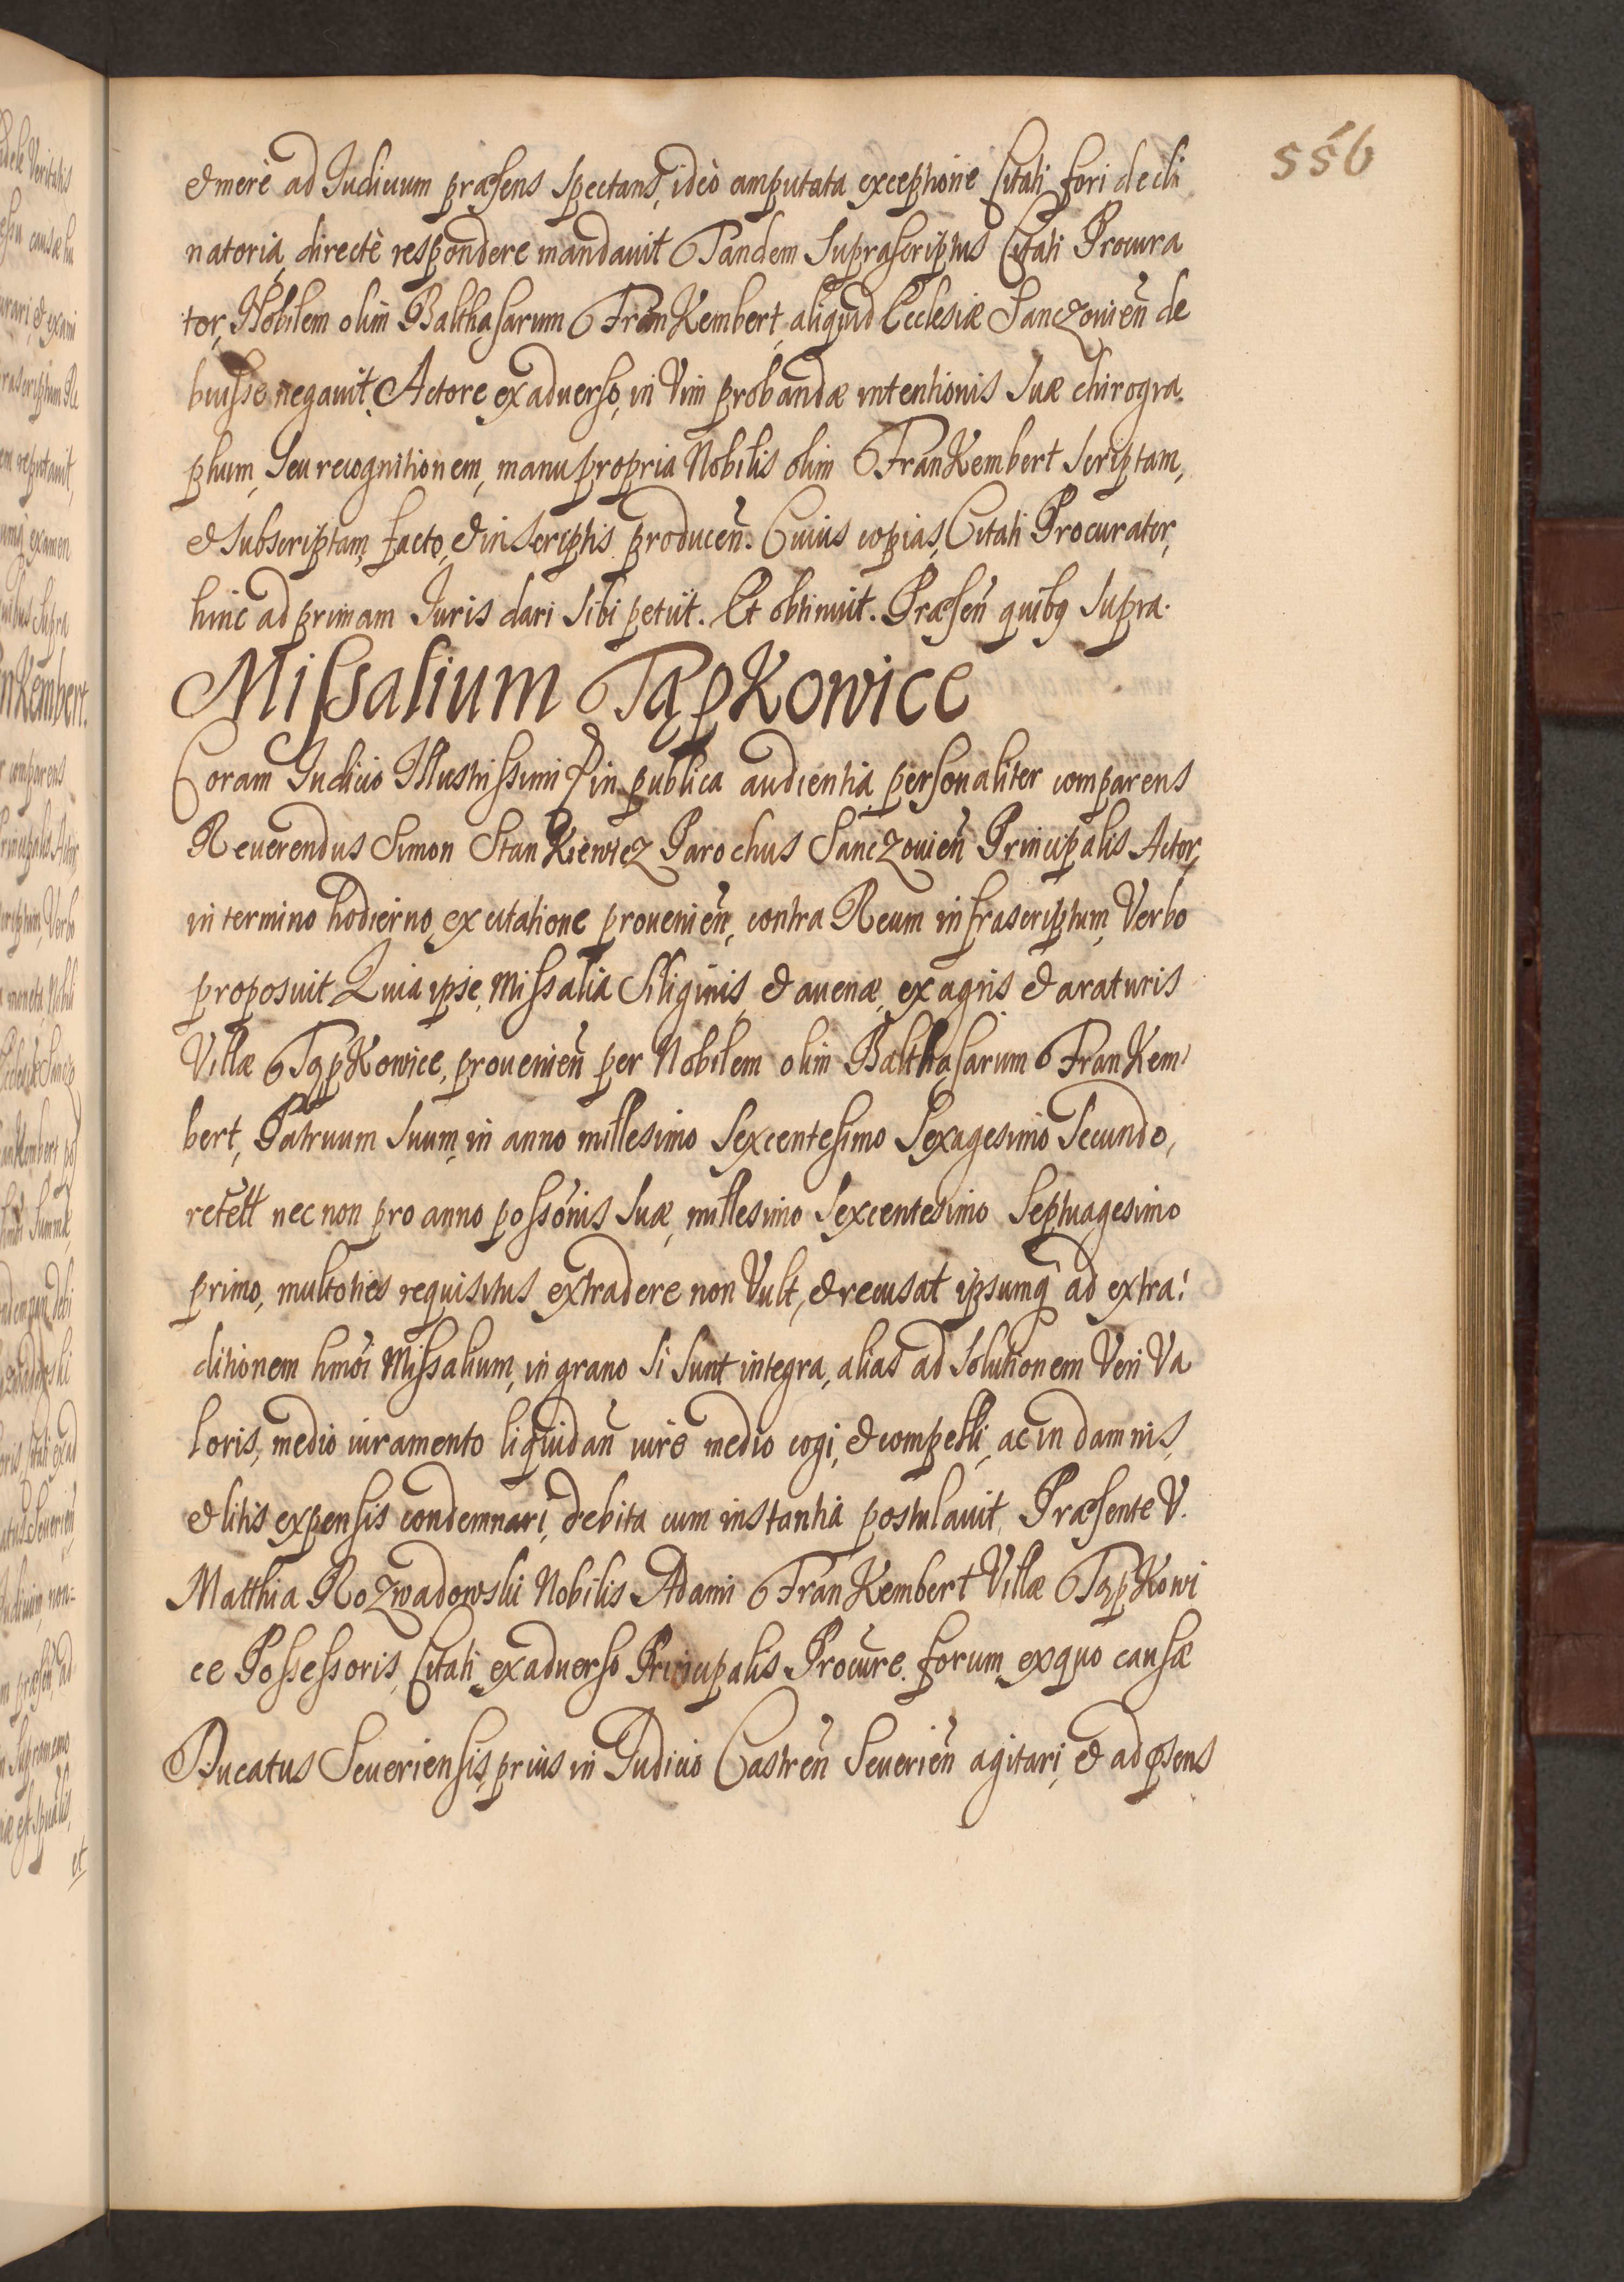 556
et merè ad Iudicium præsens spectans, ideò amputata exceptione Citati fori decli
natoria, directè respondere mandauit Tandem Suprascriptus Citati Procura
tor, Nobilem olim Balthasarum FranKembert, aliquid Ecclesiæ Sanczouien̄ de
buisse negauit. Actore ex aduerso, in Vim probandæ intentionis suæ chirogra
phum, seu recognitionem, manu propria Nobilis olim FranKembert scriptam,
et subscriptam, facto, et in scriptis producen̄. Cuius copias, Citati Procurator,
hinc ad primam Iuris dari sibi petijt. Et obtinuit. Præsen̄ quibꝫ supra.
Missalium TąpKowice
Coram Iudicio Illustrissimi D in publica audientia personaliter comparens
Reuerendus Simon StanKiewicz Parochus Sanczouien̄ Principalis Actor,
in termino hodierno, ex citatione prouenien̄, contra Reum infrascriptum, Verbo
proposuit. Quia ipse, Missalia Siliginis, et auenæ, ex agris et araturis
Villæ TąpKowice, prouenien̄ per Nobilem olim Balthasarum FranKem
bert, Patruum suum, in anno millesimo Sexcentesimo Sexagesimo Secundo,
reten̄t nec non pro anno posso͞nis suæ, millesimo sexcentesimo septuagesimo
primo, multoties requisitus extradere non Vult, et recusat ipsumqꝫ ad extra
ditionem hmo͞i Missalium, in grano si sunt integra, alias ad solutionem Veri Va
loris, medio iuramento liquidan̄ iure medio cogi, et compelli, ac in damnis,
et litis expensis condemnari, debita cum instantia postulauit. Præsente V.
Matthia Rozwadowski Nobilis Adami FranKembert Villæ TąpKowi
ce Possessoris, Citati, ex aduerso Principalis Procu͞re. forum, ex quo causæ
Ducatus Seueriensis, prius in Iudicio Castren̄ Seuerien̄ agitari, et ad p͞sens